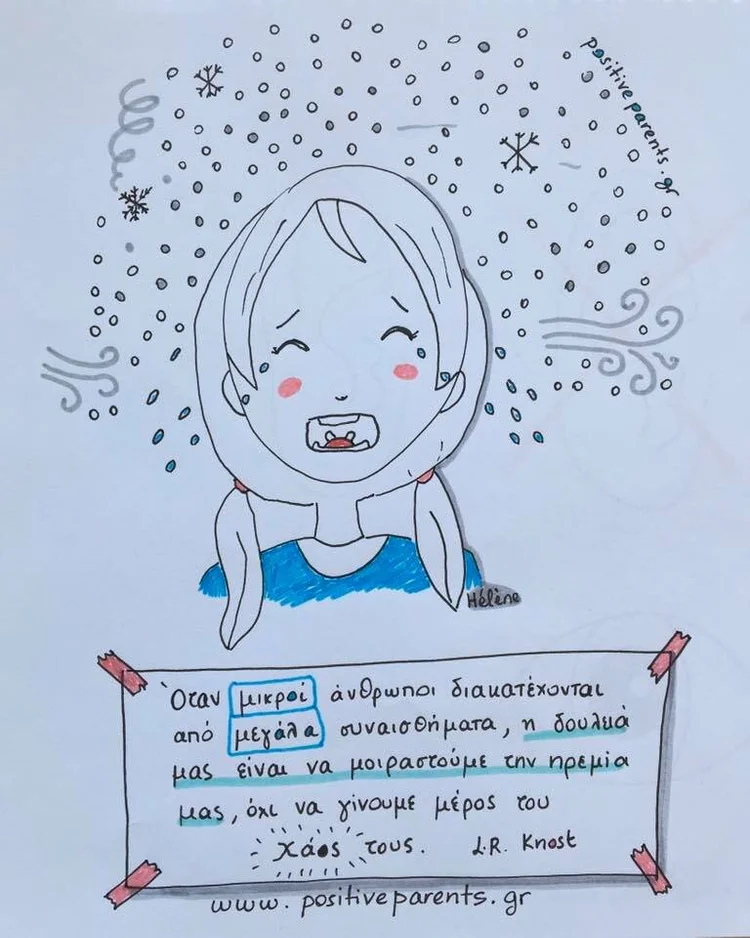 positiveparents.gr
Hélène
Όταν μικροί άνθρωποι διακατέχονται
από μεγάλα συναισθήματα, η δουλειά
μας είναι να μοιραστούμε την ηρεμία
μας, όχι να γίνουμε μέρος του
χάος τους. L.R. Knost
www.positiveparents.gr